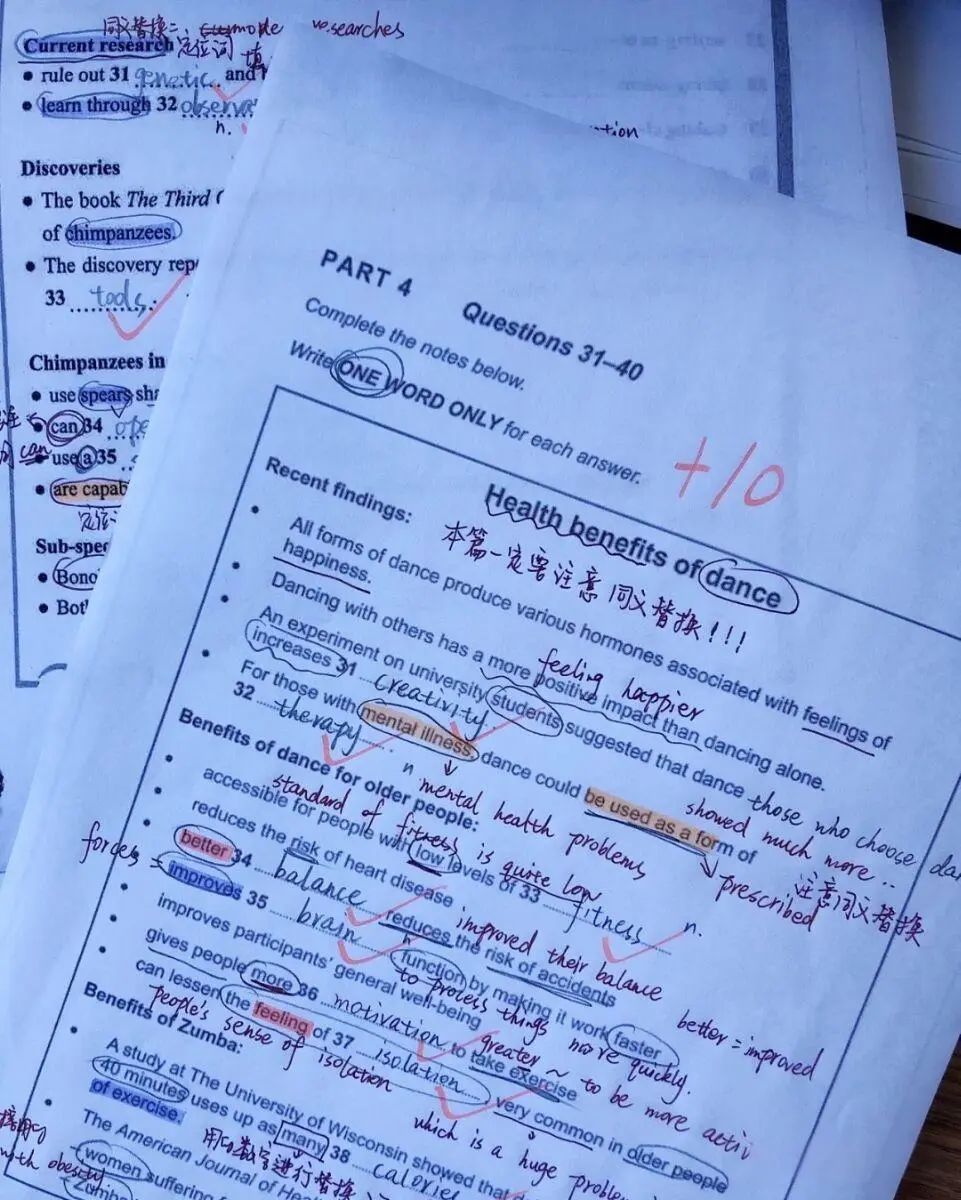 同义替换
researches
Current research 定位词
rule out 31 genetic and
learn through 32
n.
Discoveries
The book The Third
of chimpanzees.
The discovery
33 tools
Chimpanzees in
use spears
can 34
can
use a 35
are
Sub-
Bono
PART 4 Questions 31–40
Complete the notes below.
Write ONE WORD ONLY for each answer.
+10
Health benefits of dance
本篇一定要注意同义替换!!!
Recent findings:
All forms of dance produce various hormones associated with feelings of
happiness.
feeling happier
Dancing with others has a more positive impact than dancing alone.
An experiment on university students suggested that dance
those who choose
increases 31 creativity
showed much more..
For those with mental illness, dance could be used as a form of
32 therapy
n
mental health problems
prescribed
注意同义替换
Benefits of dance for older people:
standard of fitness is quite low
accessible for people with low levels of 33 fitness
n.
reduces the risk of heart disease
improved their balance
better 34 balance reduces the risk of accidents
better = improved
forces =
improves 35 brain function by making it work faster
to process things more quickly.
improves participants' general well-being
gives people more 36 motivation to take exercise
greater ~ to be more
can lessen the feeling of 37 isolation very common in older people
people's sense of isolation
which is a huge
Benefits of Zumba:
A study at The University of Wisconsin showed that
40 minutes uses up as many 38
of exercise.
The American Journal of
women suffering
obesity
Zumba